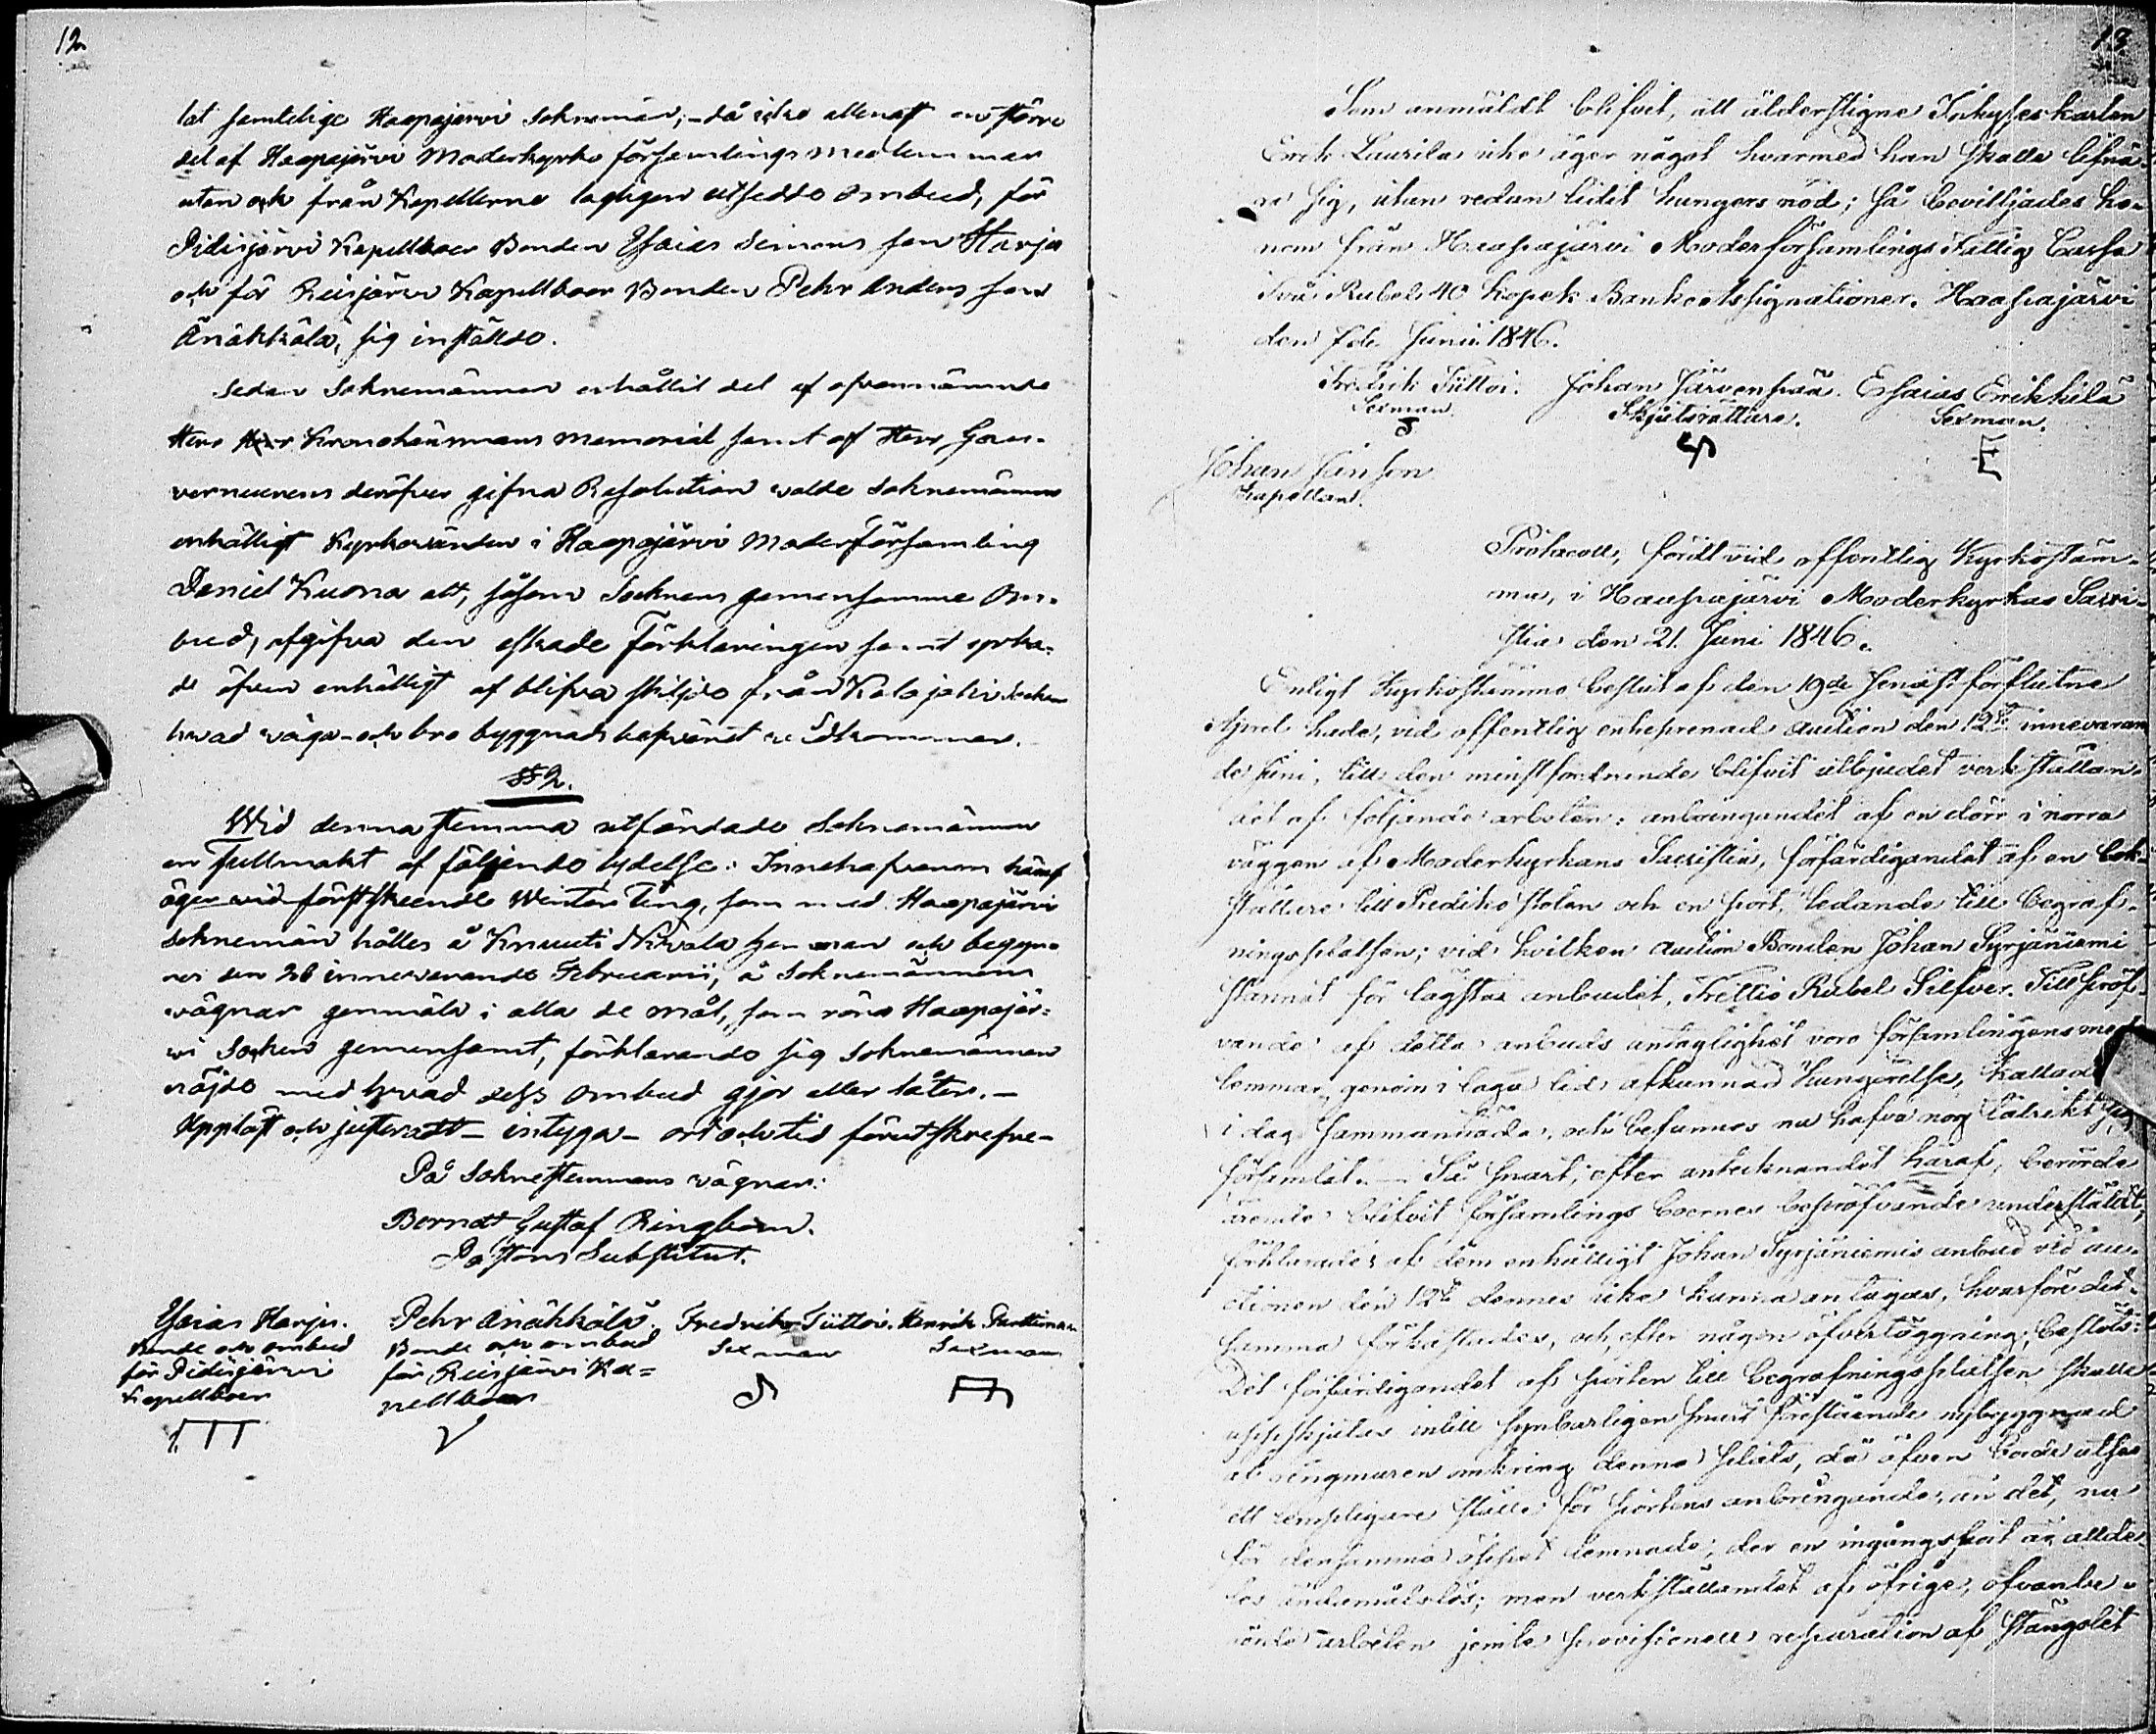 12.
lat samtelige Haapajervi Soknemän, - då icke allenast en större
del af Haapajärvi Moderkyrko församlings medlemmar
utan ock från Kapellerne lagligen utsedde Ombud, för
Pidisjärvi Kapellboer Bonden Esaias Simons son Harja
och för Reisjärvi Kapellboer Bonden Pehr Anders son
Änäkkälä, sig instälde.
Sedan Soknemännen erhållit del af ofvannämnde
Herr Kronolänsmans memorial samt af Herr Gou-
verneurens deröfver gifna Resolution valde Soknemännen
enhälligt Kyrkovärden i Haapajärvi Moderförsamling
Daniel Kuona att, såsom Socknens gemensamme Om-
bud, afgifva den äskade Förklaringen samt yrka-
de äfven enhälligt at blifva skiljde från Kalajoki Socken
hvad väga- och bro byggnadsbesväret vidkommer.
§§ 2.
Wid denna stemma utfärdade Soknemännen
en Fullmakt af följande lydelse: Innehafvaren häraf
äger vid förstskeende Winter Ting, som med Haapajärvi
soknemän hålles å Knuuti Nivala hemman och begyn-
nes den 26 innevarande Februarii, å Soknemännens
vägnar genmäla i alla de mål, som röra Haapajär-
vi Socken gemensamt, förklarande sig Soknemännen
nöjde med hvad dess Ombud gjör eller låter. -
Uppläst och justeradt - intyga - ort och tid förutskrefne -
På Soknestemmans vägnar:
Berndt Gustaf Ringbom.
Pastors Substitut.
Esaias Harju. Pehr Änäkkälä. Fredrik Tiittoi. Henrik
Bonde och ombud Bonde och ombud Sexman Sexman
för Pidisjärvi för Reisjärvi Ka-
Kapellboer pellboer
13
Som anmäldt blifvit, att ålderstigne Inhyseskarlen
Erik Laurila icke äger något hvarmed han skulle lifnä-
ra sig, utan redan lidit hungersnöd; så bevilljades ho-
nom från Haapajärvi Moderförsamlings Fattig Cassa
två Rubel 40 Kopek Bankoassignationer. Haapajärvi
den 7de Junii 1846.
Fredrik Tiittoi. Johan Järvenpää. Esaias Erikkilä
Sexman. Skjutsrättare. Sexman.
Johan Jansson
Kapellan.
Protocoll, fördt vid offentlig Kyrkostäm-
ma, i Haapajärvi Moderkyrkas Sacri-
stia den 21. Juni 1846.
Enligt Kyrkostämmo beslut af den 19de senast förflutne
April hade, vid offentlig entreprenad auction den 12te innevaran
de Juni, till den minst fordrande blifvit utbjudet verkställan-
det af följande arbeten: anbringandet af en dörr i norra
väggen af Moderkyrkans Sacristia, förfärdigandet af en bok-
ställare till Predikostolen och en port, ledande till begraf-
ningsplatsen; vid hvilken auction Bonden Johan Syrjäniemi
stannat för lägsta anbudet, Trettio Rubel Silfver. Till pröf-
vande af detta anbuds antaglighet voro församlingens med-
lemmar, genom i laga tid afkunnad Kungörelse, kallade
i dag sammanträda, och befunnos nu hafva nog talrikt sig
församlat. - Så snart, efter antecknandet häraf, berörde
ärende blifvit församlings boernes bepröfvande underställdt,
förklarades af dem enhälligt Johan Syrjäniemis anbud vid auc-
tionen den 12te dennes icke kunna antagas, hvarföre det-
samma förkastades, och, efter någon öfverläggning, beslöts:
Det förfärdigandet af porten till begrafningsplatsen skulle
uppskjutas intill synbarligen snart förestående nybyggnad
af ringmuren omkring denna plats, då äfven borde utses
ett lämpligare ställe för portens anbringande, än det, nu
för densamma öppet lemnade, der en ingångsport är allde-
les ändamålslös; men verkställandet af öfrige, ofvanbe-
rörde arbeten jemte provisionell reparation af stängslet